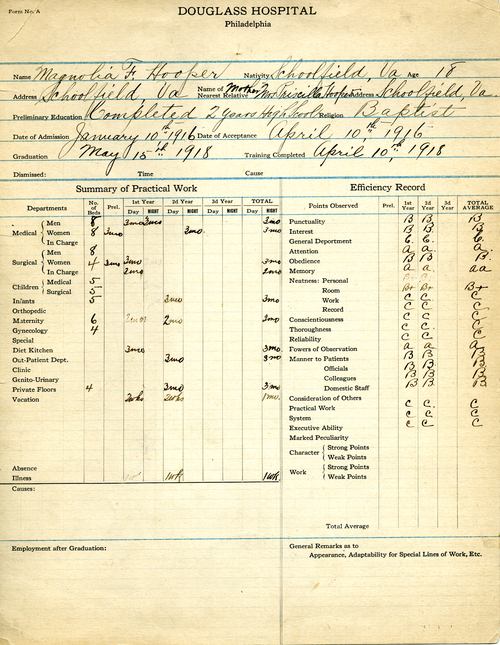 Form No. A
DOUGLASS HOSPITAL
Philadelphia
Name Magnolia F. Hooper Nativity Schoolfield, Va Age 18
Address Schoolfield, Va Name of Nearest Relative Mother Mrs. Priscilla Hooper Address Schoolfield, Va.
Preliminary Education Completed 2 years High School Religion Baptist
Date of Admission January 10th 1916 Date of Acceptance April 10th 1916
Graduation May 15th 1918 Training Completed April 10th 1918
Dismissed: Time Cause
Summary of Practical Work
Departments No. of Beds Prel. 1st Year 2d Year 3d Year TOTAL
Day NIGHT Day NIGHT Day NIGHT Day NIGHT
Men 8 3mo 3mo
Medical Women 8 3mo 3mo. 3mo
In Charge
Men 8
Surgical Women 4 3mo 3mo 3mo
In Charge 2mo 2mo
Children Medical 5
Surgical 5
Infants 5 3mo 3mo
Orthopedic
Maternity 6 2mo 2mo
Gynecology 4
Special
Diet Kitchen 3mo 3mo.
Out-Patient Dept. 3mo 3mo
Clinic
Genito-Urinary
Private Floors 4 3mo 3mo
Vacation 2wks 2wks 1mo.
Absence
Illness 1wk 1wk
Causes:
Employment after Graduation:
Efficiency Record
Points Observed Prel. 1st Year 2d Year 3d Year TOTAL AVERAGE
Punctuality B B B
Interest B B B
General Department C. C. C.
Attention a a. a.
Obedience B B B.
Memory a a. aa
Neatness: Personal B C
Room B+ B+ B+
Work C C C
Record C C C
Conscientiousness C C C
Thoroughness C C. C
Reliability C C C
Powers of Observation a a a
Manner to Patients B B B
Officials B B B
Colleagues B B B
Domestic Staff B B B
Consideration of Others C C. C
Practical Work C C. C
System C C. C
Executive Ability C C. C
Marked Peculiarity
Character Strong Points
Weak Points
Work Strong Points
Weak Points
Total Average
General Remarks as to
Appearance, Adaptability for Special Lines of Work, Etc.